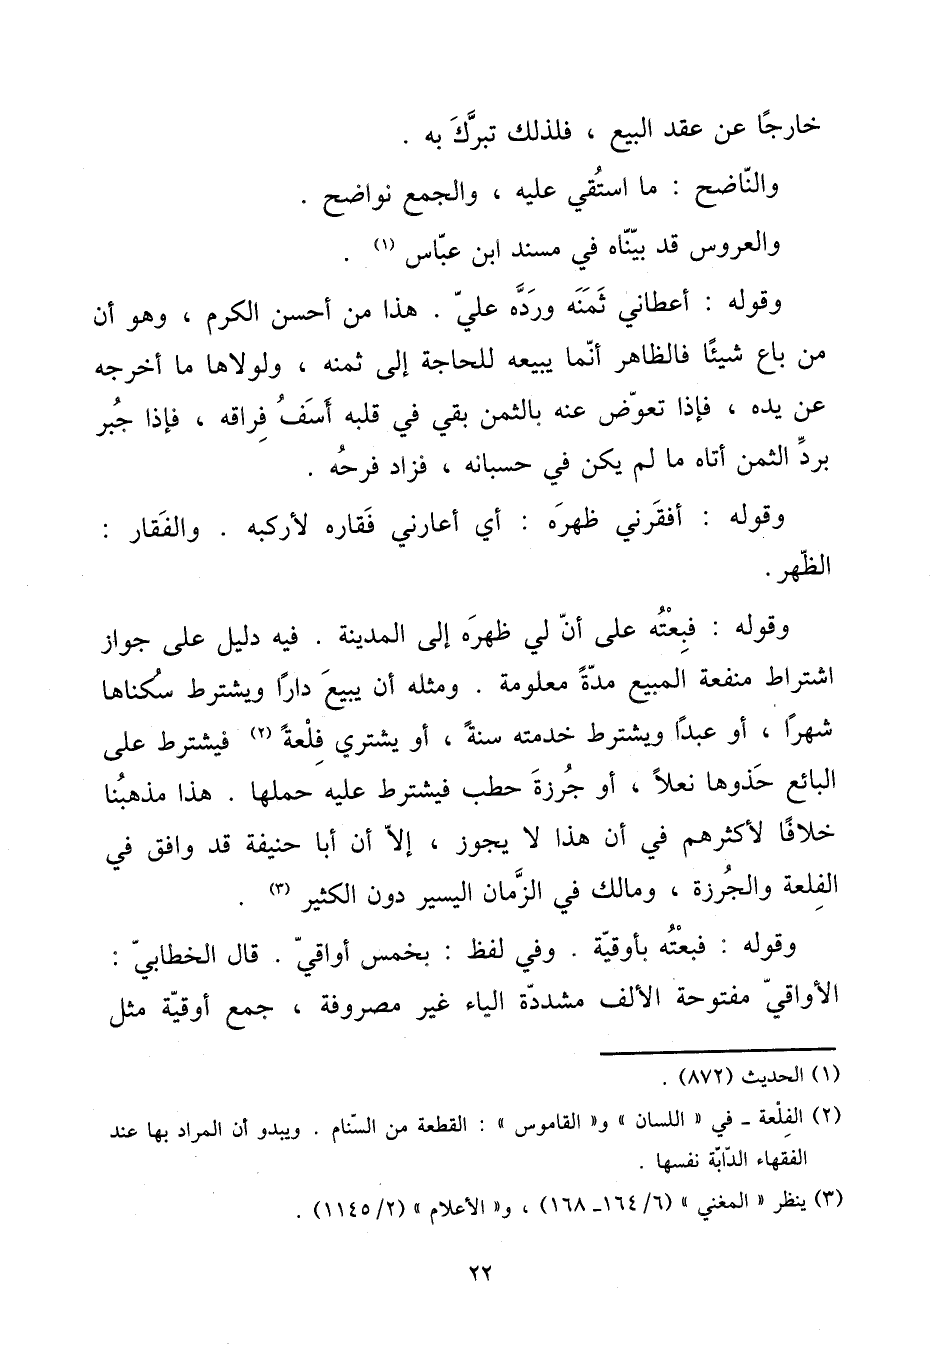 خارجًا عن عقد البيع ، فلذلك تبرَّكَ به .
والنّاضح : ما استُقي عليه ، والجمع نواضح .
والعروس قد بيّنّاه في مسند ابن عبّاس (١) .
وقوله : أعطاني ثَمَنَه ورَدَّه عليّ . هذا من أحسن الكرم ، وهو أن
من باع شيئًا فالظاهر أنّما يبيعه للحاجة إلى ثمنه ، ولولاها ما أخرجه
عن يده ، فإذا تعوّض عنه بالثمن بقي في قلبه أَسَفُ فِراقه ، فإذا جُبر
بردِّ الثمن أتاه ما لم يكن في حسبانه ، فزاد فرحُه .
وقوله : أفقَرني ظهرَه : أي أعارني فَقاره لأركبه . والفَقار :
الظّهر .
وقوله : فبِعْتُه على أنّ لي ظهرَه إلى المدينة . فيه دليل على جواز
اشتراط منفعة المبيع مدّةً معلومة . ومثله أن يبيعَ دارًا ويشترط سكُناها
شهرًا ، أو عبدًا ويشترط خدمته سنةً ، أو يشتري فِلْعةً (٢) فيشترط على
البائع حَذوها نعلاً ، أو جُرزةَ حطب فيشترط عليه حملها . هذا مذهبُنا
خلافًا لأكثرهم في أن هذا لا يجوز ، إلاّ أن أبا حنيفة قد وافق في
الفِلعة والجُرزة ، ومالك في الزَّمان اليسير دون الكثير (٣) .
وقوله : فبعْتُه بأوقيّة . وفي لفظ : بخمس أواقيّ . قال الخطابيّ :
الأواقيّ مفتوحة الألف مشددّة الياء غير مصروفة ، جمع أوقيّة مثل
(١) الحديث (٨٧٢) .
(٢) الفِلْعة ـ في « اللسان » و« القاموس » : القطعة من السّنام . ويبدو أن المراد بها عند
الفقهاء الدّابّة نفسها .
(٣) ينظر « المغني » (٦/ ١٦٤ـ ١٦٨) ، و« الأعلام » (٢/ ١١٤٥) .
٢٢